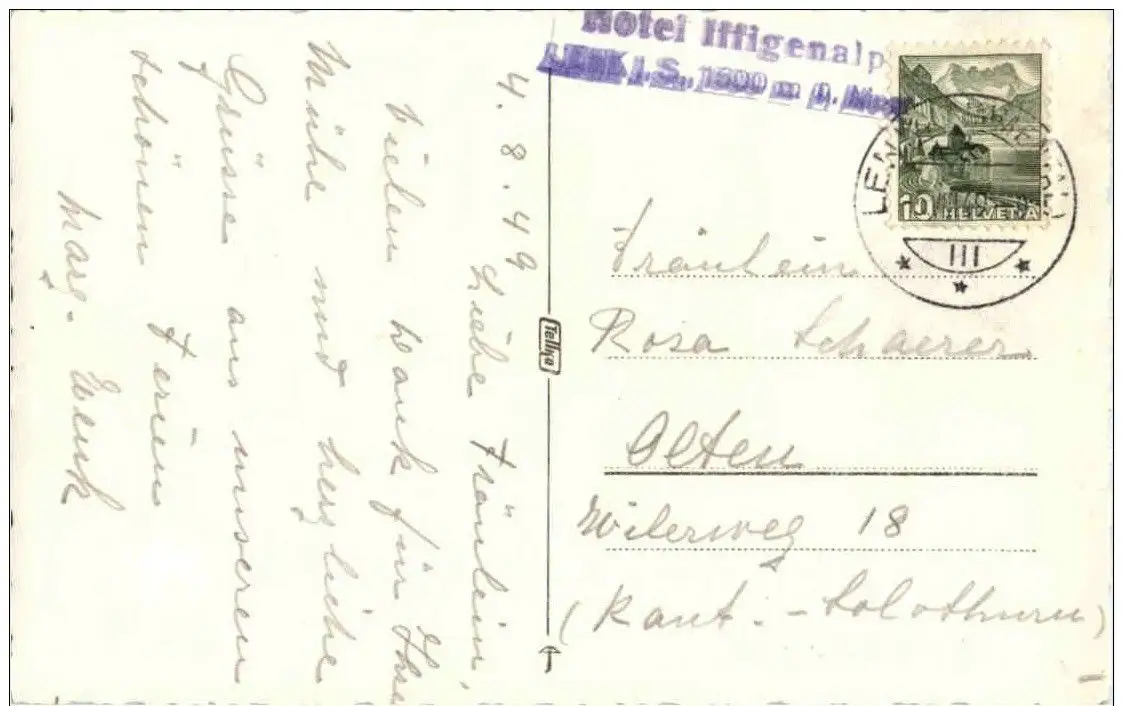 4.8.49
Liebe Fräulein,
Vielen Dank für Ihre
Mühe und herzliche
Grüsse aus unseren
schönen Ferien
Marg. Wenk
Hotel Iffigenalp
LENK i. S., 1600 m ü. Meer
10 HELVETIA
LENK
III
Tellko
Fräulein
Rosa Schaerer
Olten
Wilerweg 18
(Kant. - Solothurn)